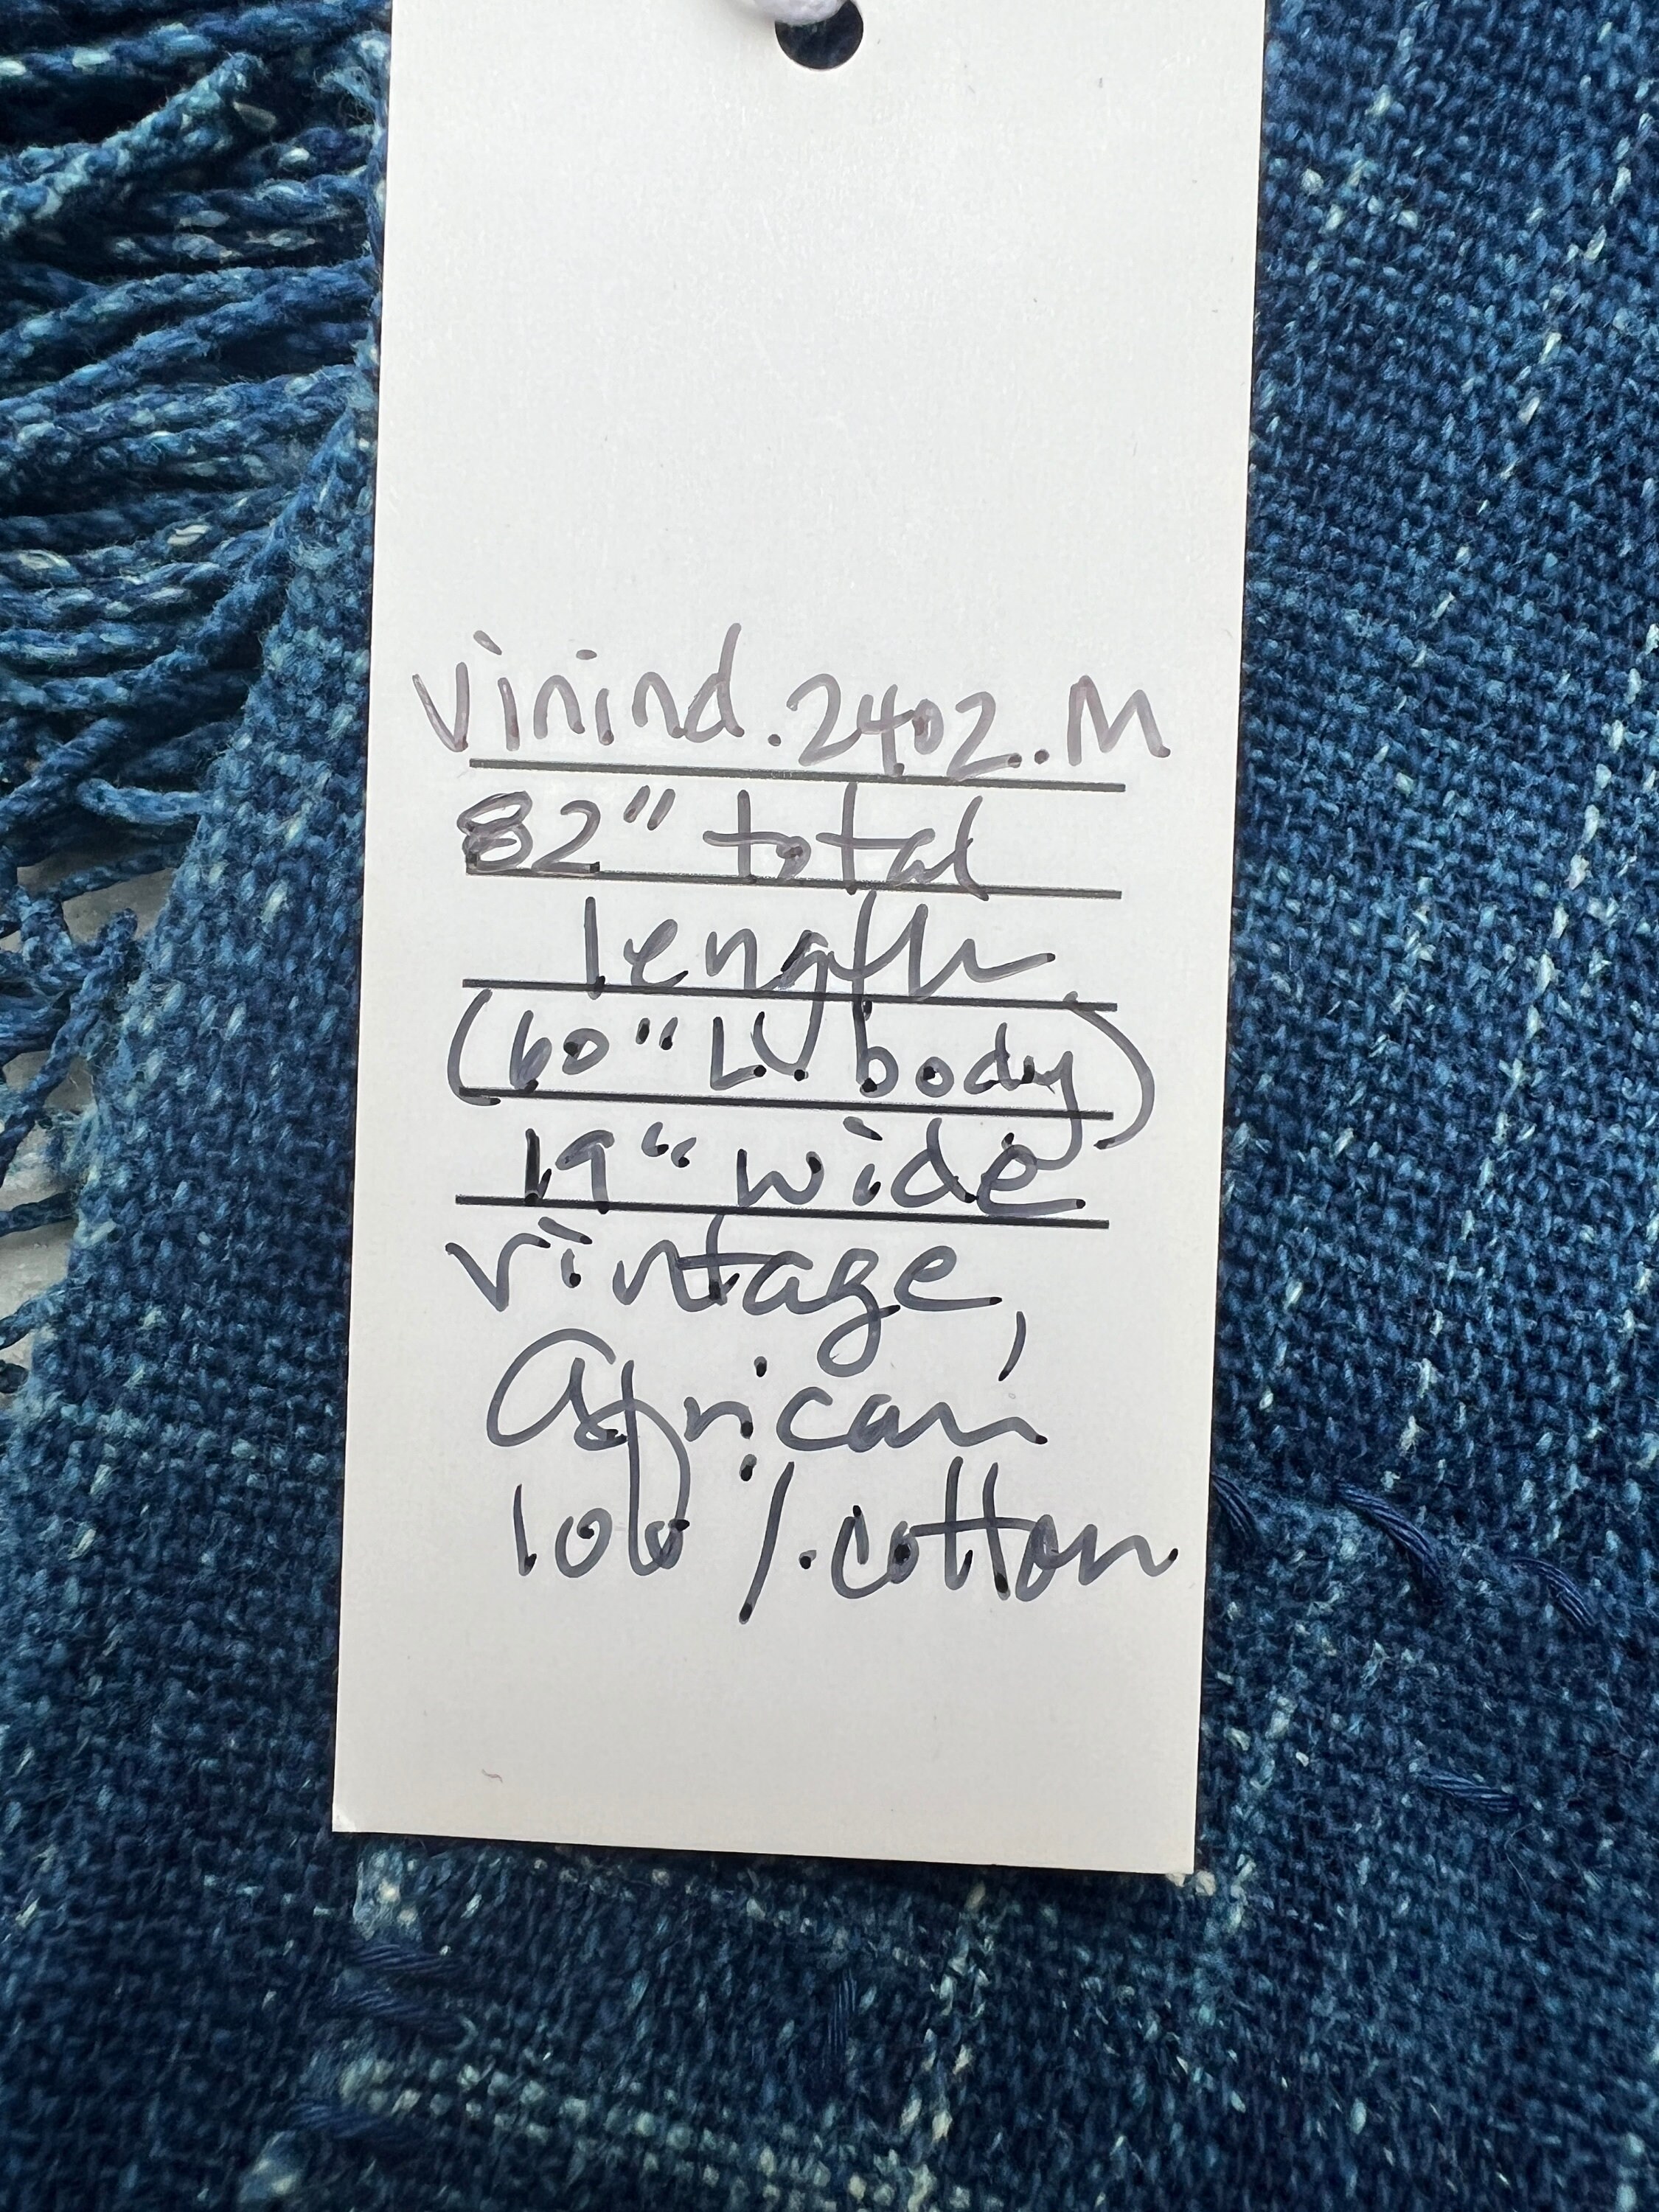 vinind.2402.M
82" total
length
(60" L. body)
19" wide
vintage,
African,
100%.cotton